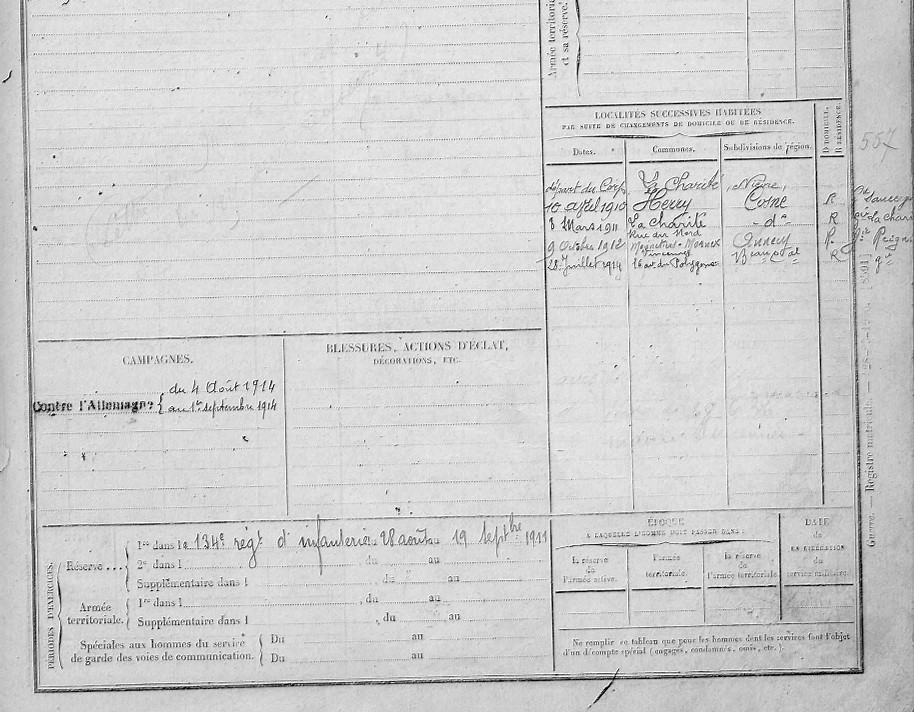 Armée territoria
et sa réserve.
LOCALITÉS SUCCESSIVES HABITÉES
PAR SUITE DE CHANGEMENTS DE DOMICILE OU DE RÉSIDENCE.
Dates. Communes. Subdivisions de région. D DOMICILE. R RÉSIDENCE.
557
départ du Corps La Charité Nièvre,
10 avril 1910 Herry Cosne R
8 Mars 1911 La Charité - dº R
Rue du Nord
9 Octobre 1912 Monnetier-Mornex Annecy R.
Vincennes
28 Juillet 1914 16 av. du Polygone R
CAMPAGNES.
Contre l'Allemagne { du 4 Août 1914
au 1er septembre 1914
BLESSURES, ACTIONS D'ÉCLAT,
DÉCORATIONS, ETC.
Guerre. — Registre matricule.
PÉRIODES D'EXERCICES.
Réserve....
1re dans le 134e régt d'infanterie du 28 août au 19 Septbre 1911
2e dans l du au
Supplémentaire dans l du au
Armée
territoriale.
1re dans l , du au
Supplémentaire dans l , du au
Spéciales aux hommes du service
de garde des voies de communication.
Du au
Du au
ÉPOQUE
A LAQUELLE L'HOMME DOIT PASSER DANS:
la réserve
de
l'armée active.
l'armée
territoriale.
la réserve
de
l'armée territoriale.
DATE
de
LA LIBÉRATION
du
service militaire.
Ne remplir ce tableau que pour les hommes dont les services font l'objet
d'un décompte spécial (engagés, condamnés, omis, etc.).